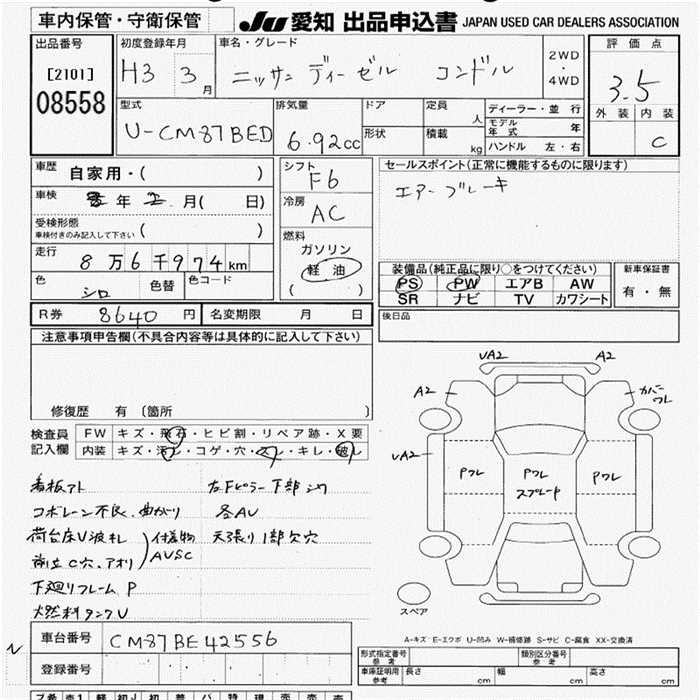 車内保管・守衛保管
JU 愛知 出品申込書 JAPAN USED CAR DEALERS ASSOCIATION
出品番号
[2101]
08558
初度登録年月
H3 3月
車名・グレード
ニッサン ディーゼル コンドル
2WD
・
4WD
評価点
3.5
外装 内装
C
型式
U-CM87BED
排気量
6.92cc
ドア
形状
定員
人
積載
kg
ディーラー・並行
モデル年式 年
ハンドル 左・右
車歴
自家用・( )
車検
年 2月( 日)
受検形態
車検付きのみ記入して下さい ( )
走行
8万6千974km
色
シロ
色替
色コード
シフト
F6
冷房
AC
燃料
ガソリン
軽油
( )
セールスポイント(正常に機能するものに限ります)
エアーブレーキ
装備品(純正品に限り○をつけてください)
PS PW エアB AW
SR ナビ TV カワシート
新車保証書
有・無
R券 8640円
名変期限 月 日
後日品
注意事項申告欄(不具合内容等は具体的に記入して下さい)
修復歴 有 〔箇所 〕
検査員
記入欄
FW キズ・飛石・ヒビ割・リペア跡・X要
内装 キズ・汚レ・コゲ・穴・スレ・キレ・破レ
看板アト
コボレーン不良、曲がり
荷台床U波札
C穴、アオリ
付援物
AUSC
下廻りフレーム P
燃料タンクU
左Fピラー下部シワ
各AU
天張り1部欠穴
VA2
A2
A2
カバーワレ
VA2
Pワレ
Pワレ
スプレード
Pワレ
スペア
A-キズ E-エクボ U-凹み W-補修跡 S-サビ C-腐食 XX-交換済
N
車台番号
CM87BE42556
登録番号
形式指定番号
参考
類別区分番号
参考
車庫証明用
参考
長さ cm 幅 cm 高さ cm